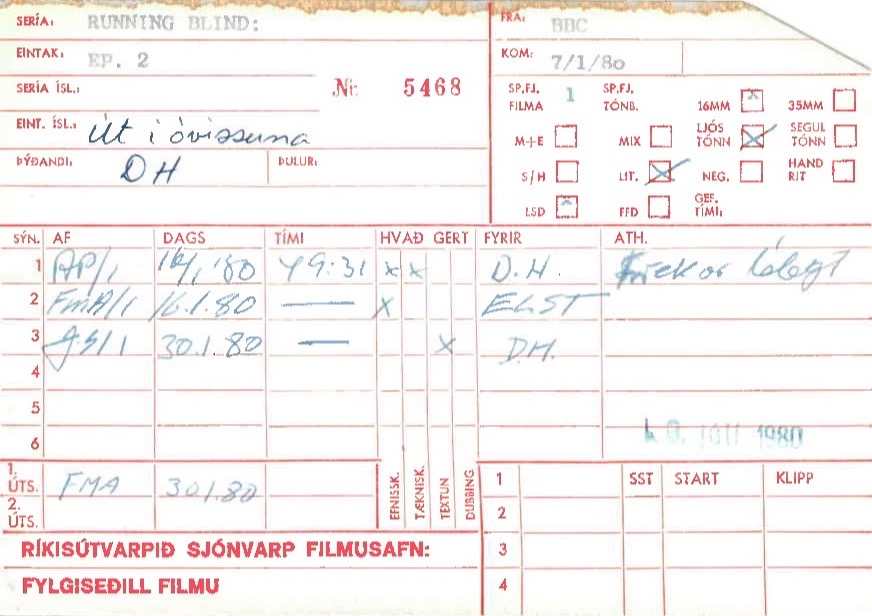 SERÍA: RUNNING BLIND:
EINTAK: EP. 2
SERÍA ÍSL.: Nr. 5468
EINT. ÍSL.: Út í óvissuna
ÞÝÐANDI, DH ÞULUR:
FRÁ: BBC
KOM: 7/1/80
SP.FJ. FILMA 1 SP.FJ. TÓNB. 16MM 35MM
M+E MIX LJÓS TÓNN SEGUL TÓNN
S/H LIT. NEG. HAND RIT
LSD FFD GEF. TÍMI:
SÝN. AF DAGS TÍMI HVAÐ GERT FYRIR ATH.
1 AP/1 49:31 x x D.H.
2 FMA/1 16.1.80 — x ELST
3 30.1.80 — x D.H.
4
5
6 1980
1. ÚTS. FMA 30.1.80
2. ÚTS.
EFNISSK. TÆKNISK. TEXTUN DUBBING
RÍKISÚTVARPIÐ SJÓNVARP FILMUSAFN:
FYLGISEÐILL FILMU
1 SST START KLIPP
2
3
4